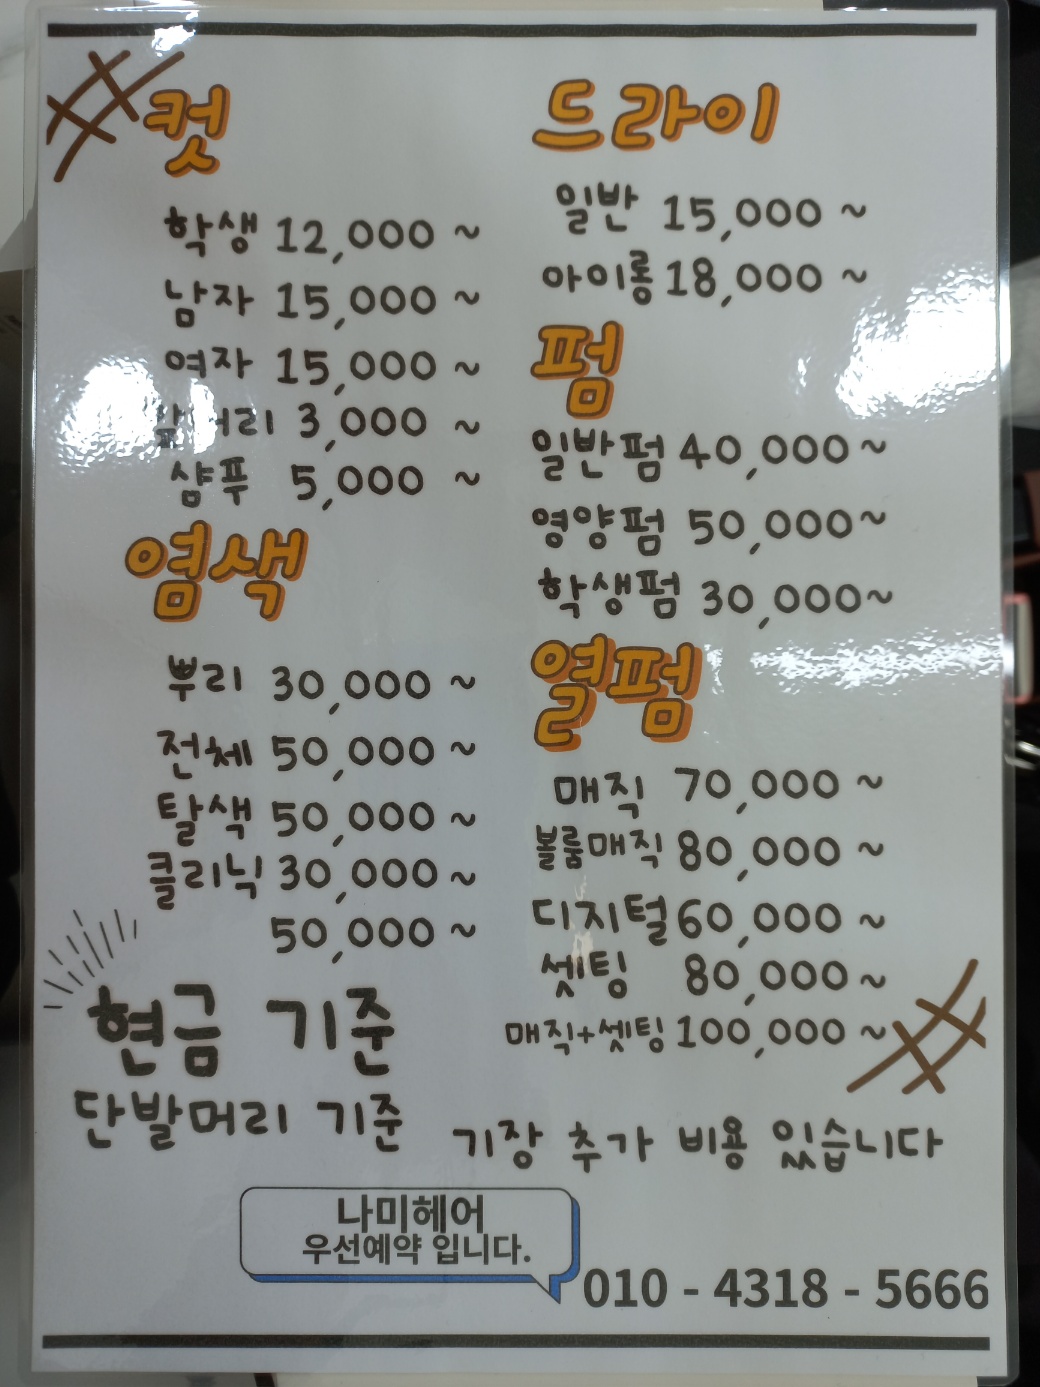 컷
학생 12,000 ~
남자 15,000 ~
여자 15,000 ~
앞머리 3,000 ~
샴푸 5,000 ~
염색
뿌리 30,000 ~
전체 50,000 ~
탈색 50,000 ~
클리닉 30,000 ~
50,000 ~
현금 기준
단발머리 기준
드라이
일반 15,000 ~
아이롱 18,000 ~
펌
일반펌 40,000~
영양펌 50,000~
학생펌 30,000~
열펌
매직 70,000 ~
볼륨매직 80,000 ~
디지털 60,000 ~
셋팅 80,000 ~
매직+셋팅 100,000 ~
기장 추가 비용 있습니다
나미헤어
우선예약 입니다.
010 - 4318 - 5666